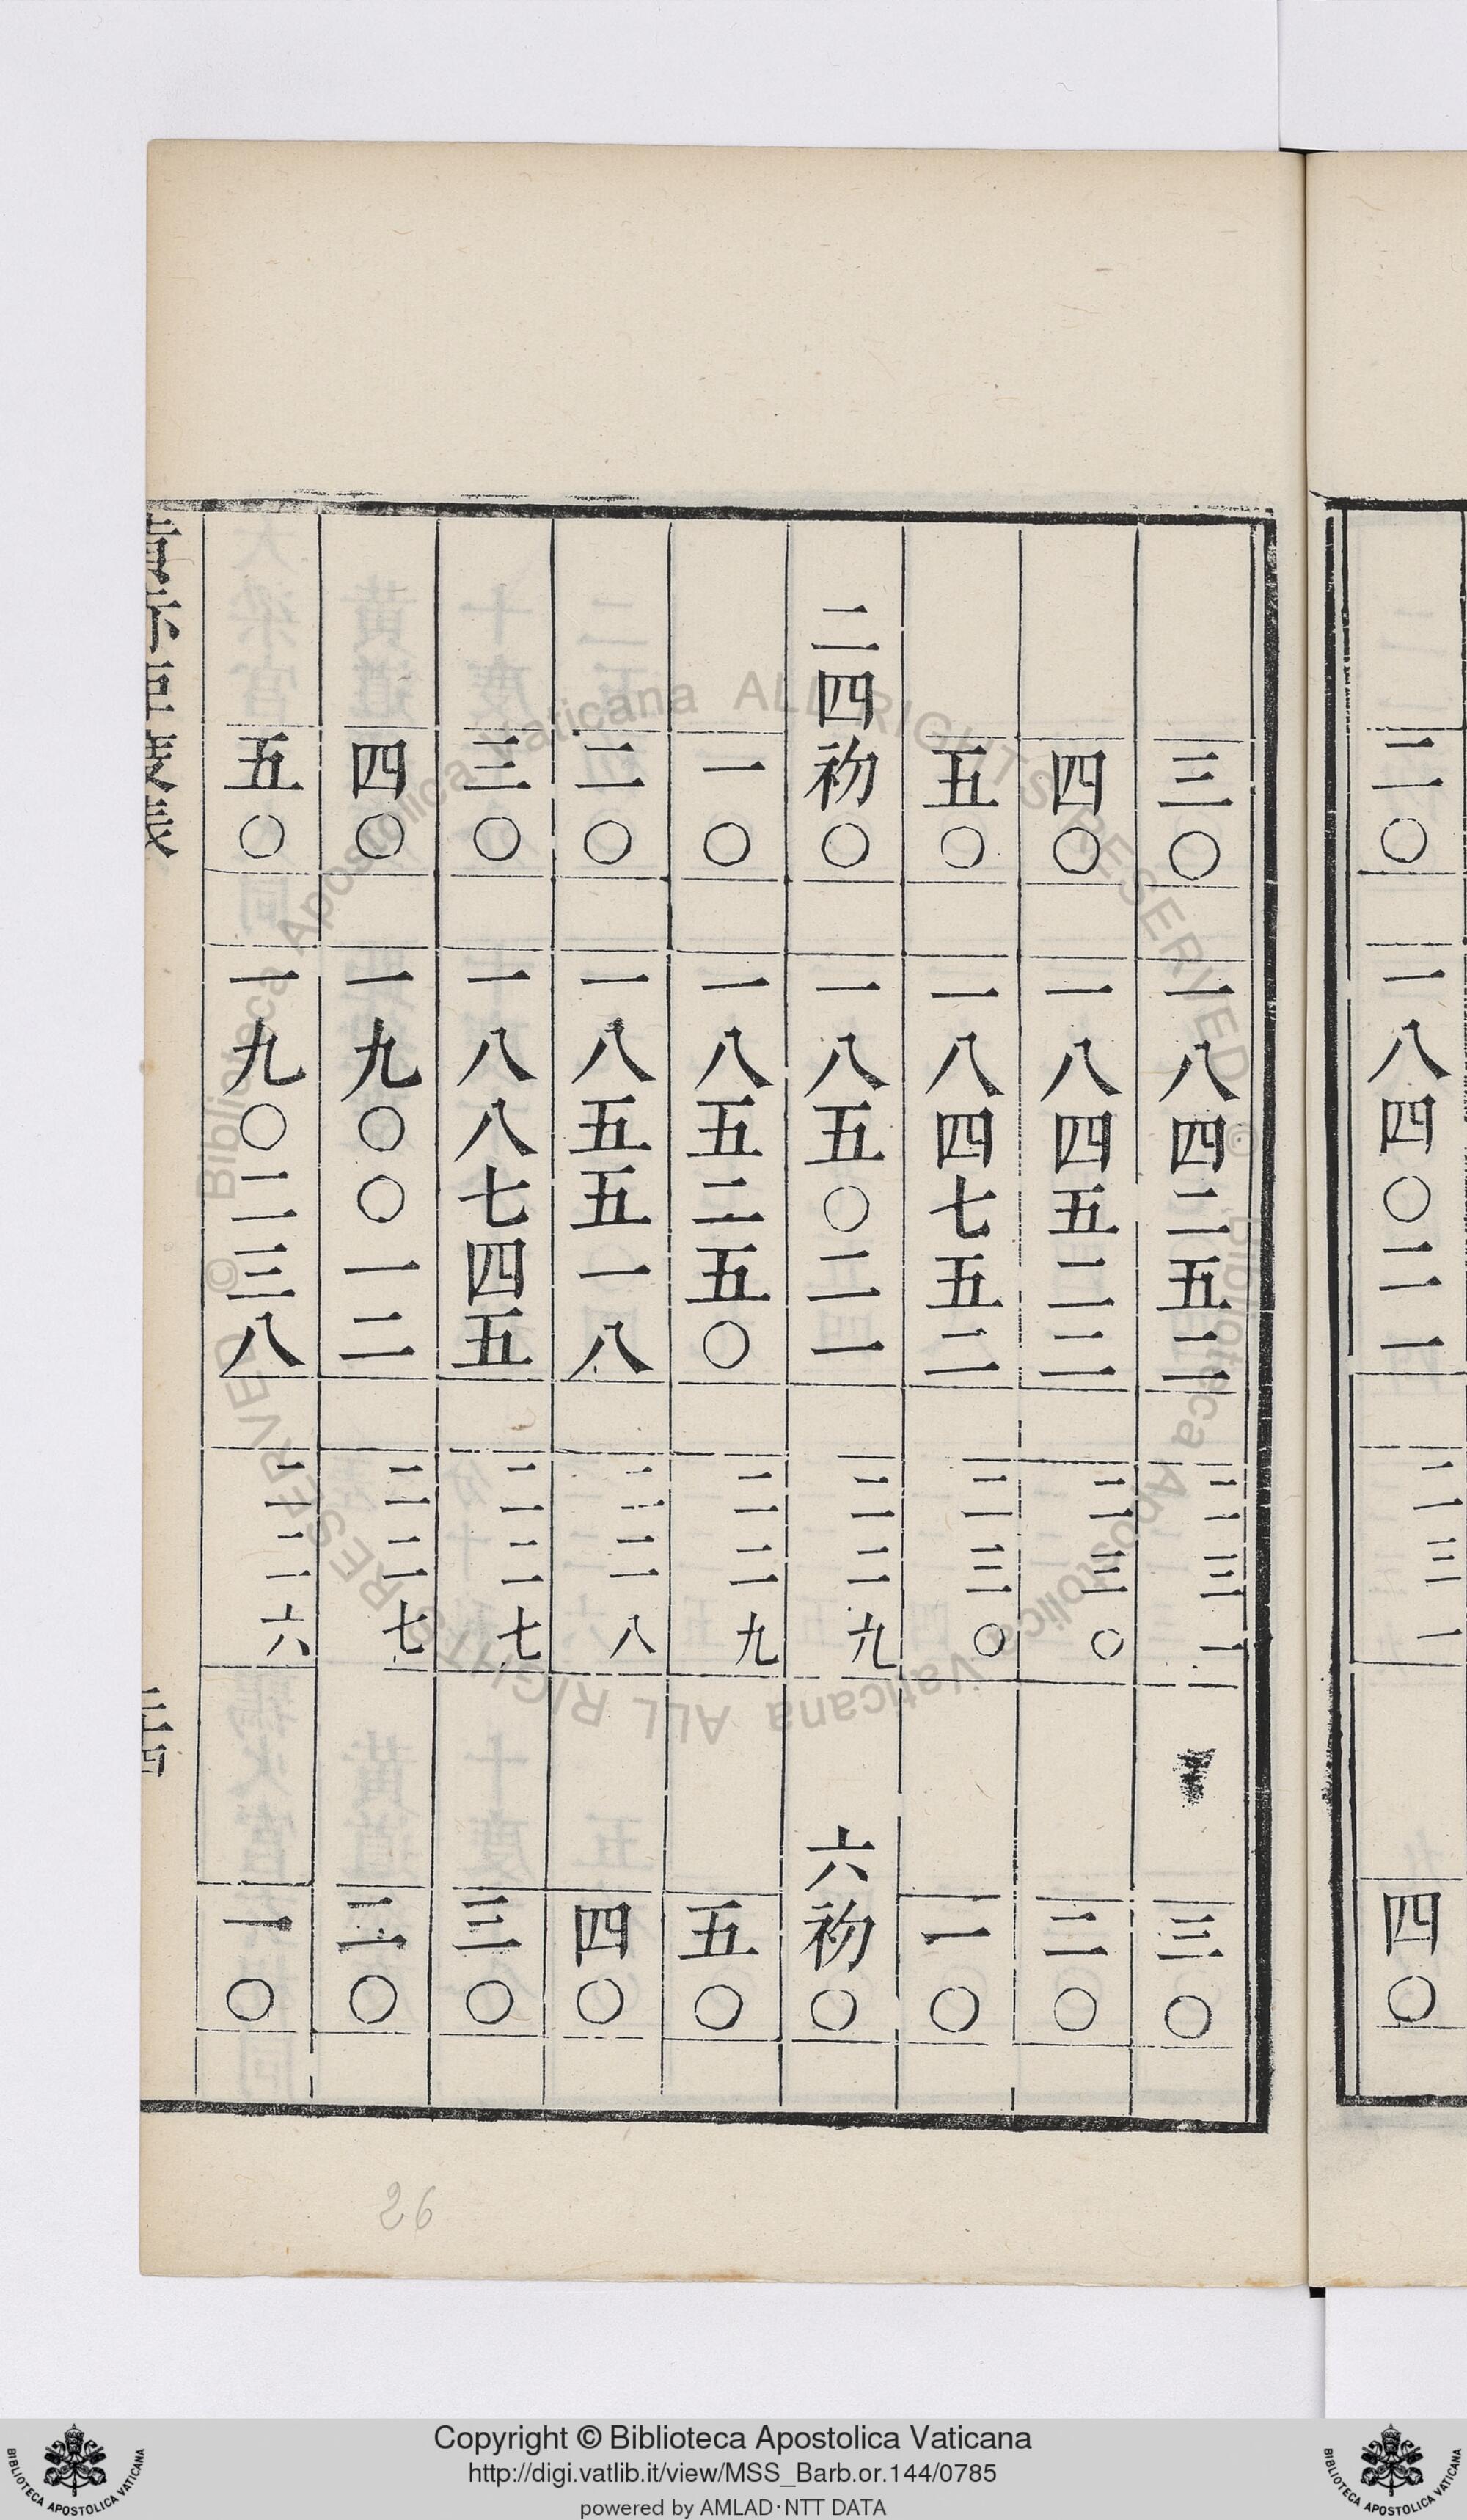 二〇 一八四〇二一 二三一 四〇
三〇 一八四二五二 二三一 三〇
四〇 一八四五二二 二三〇 二〇
五〇 一八四七五二 二三〇 一〇
二四初〇 一八五〇二一 二二九 六初〇
一〇 一八五二五〇 二二九 五〇
二〇 一八五五一八 二二八 四〇
三〇 一八八七四五 二二七 三〇
四〇 一九〇〇一二 二二七 二〇
五〇 一九〇二三八 二二六 一〇
26
© Biblioteca Apostolica Vaticana ALL RIGHTS RESERVED © Biblioteca Apostolica Vaticana ALL RIGHTS RESERVED
BIBLIOTECA APOSTOLICA VATICANA
Copyright © Biblioteca Apostolica Vaticana
http://digi.vatlib.it/view/MSS_Barb.or.144/0785
powered by AMLAD·NTT DATA
BIBLIOTECA APOSTOLICA VATICANA